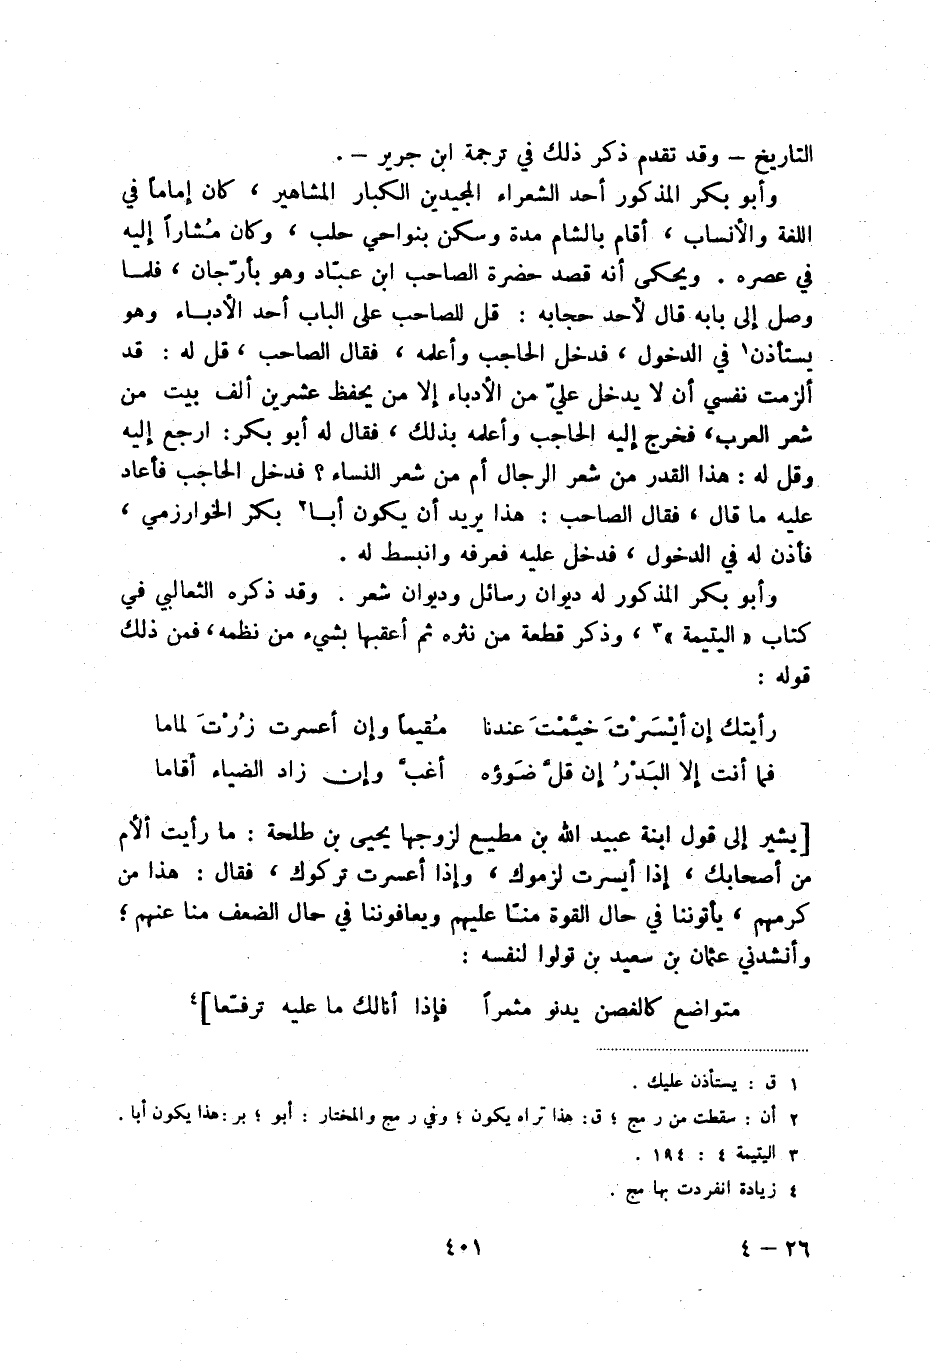 التاريخ – وقد تقدم ذكر ذلك في ترجمة ابن جرير – .
وأبو بكر المذكور أحد الشعراء المجيدين الكبار المشاهير ، كان إماماً في
اللغة والأنساب ، أقام بالشام مدة وسكن بنواحي حلب ، وكان مُشاراً إليه
في عصره . ويحكى أنه قصد حضرة الصاحب ابن عبّاد وهو بأرّجان ، فلما
وصل إلى بابه قال لأحد حجابه : قل للصاحب على الباب أحد الأدباء وهو
يستأذن١ في الدخول ، فدخل الحاجب وأعلمه ، فقال الصاحب ، قل له : قد
ألزمت نفسي أن لا يدخل عليّ من الأدباء إلا من يحفظ عشرين ألف بيت من
شعر العرب، فخرج إليه الحاجب وأعلمه بذلك ، فقال له أبو بكر: ارجع إليه
وقل له : هذا القدر من شعر الرجال أم من شعر النساء ؟ فدخل الحاجب فأعاد
عليه ما قال ، فقال الصاحب : هذا يريد أن يكون أبا٢ بكر الخوارزمي ،
فأذن له في الدخول ، فدخل عليه فعرفه وانبسط له .
وأبو بكر المذكور له ديوان رسائل وديوان شعر . وقد ذكره الثعالبي في
كتاب « اليتيمة »٣ ، وذكر قطعة من نثره ثم أعقبها بشيء من نظمه، فمن ذلك
قوله :
رأيتك إن أيْسَرْتَ خيَّمْتَ عندنا مُقيماً وإن أعسرت زُرْتَ لماما
فما أنت إلا البَدْرُ إن قلَّ ضَوؤه أغبَّ وإن زاد الضياء أقاما
[يشير إلى قول ابنة عبيد الله بن مطيع لزوجها يحيى بن طلحة : ما رأيت ألأم
من أصحابك ، إذا أيسرت لزموك ، وإذا أعسرت تركوك ، فقال : هذا من
كرمهم ، يأتوننا في حال القوة منّا عليهم ويعافوننا في حال الضعف منا عنهم ؛
وأنشدني عثمان بن سعيد بن تولوا لنفسه :
متواضع كالغصن يدنو مثمراً فإذا أنالك ما عليه ترفّعا]٤
١ ق : يستأذن عليك .
٢ أن : سقطت من ر مج ؛ ق: هذا تراه يكون ؛ وفي ر مج والمختار : أبو ؛ بر :هذا يكون أبا .
٣ اليتيمة ٤ : ١٩٤ .
٤ زيادة انفردت بها مج .
٢٦ – ٤ ٤٠١